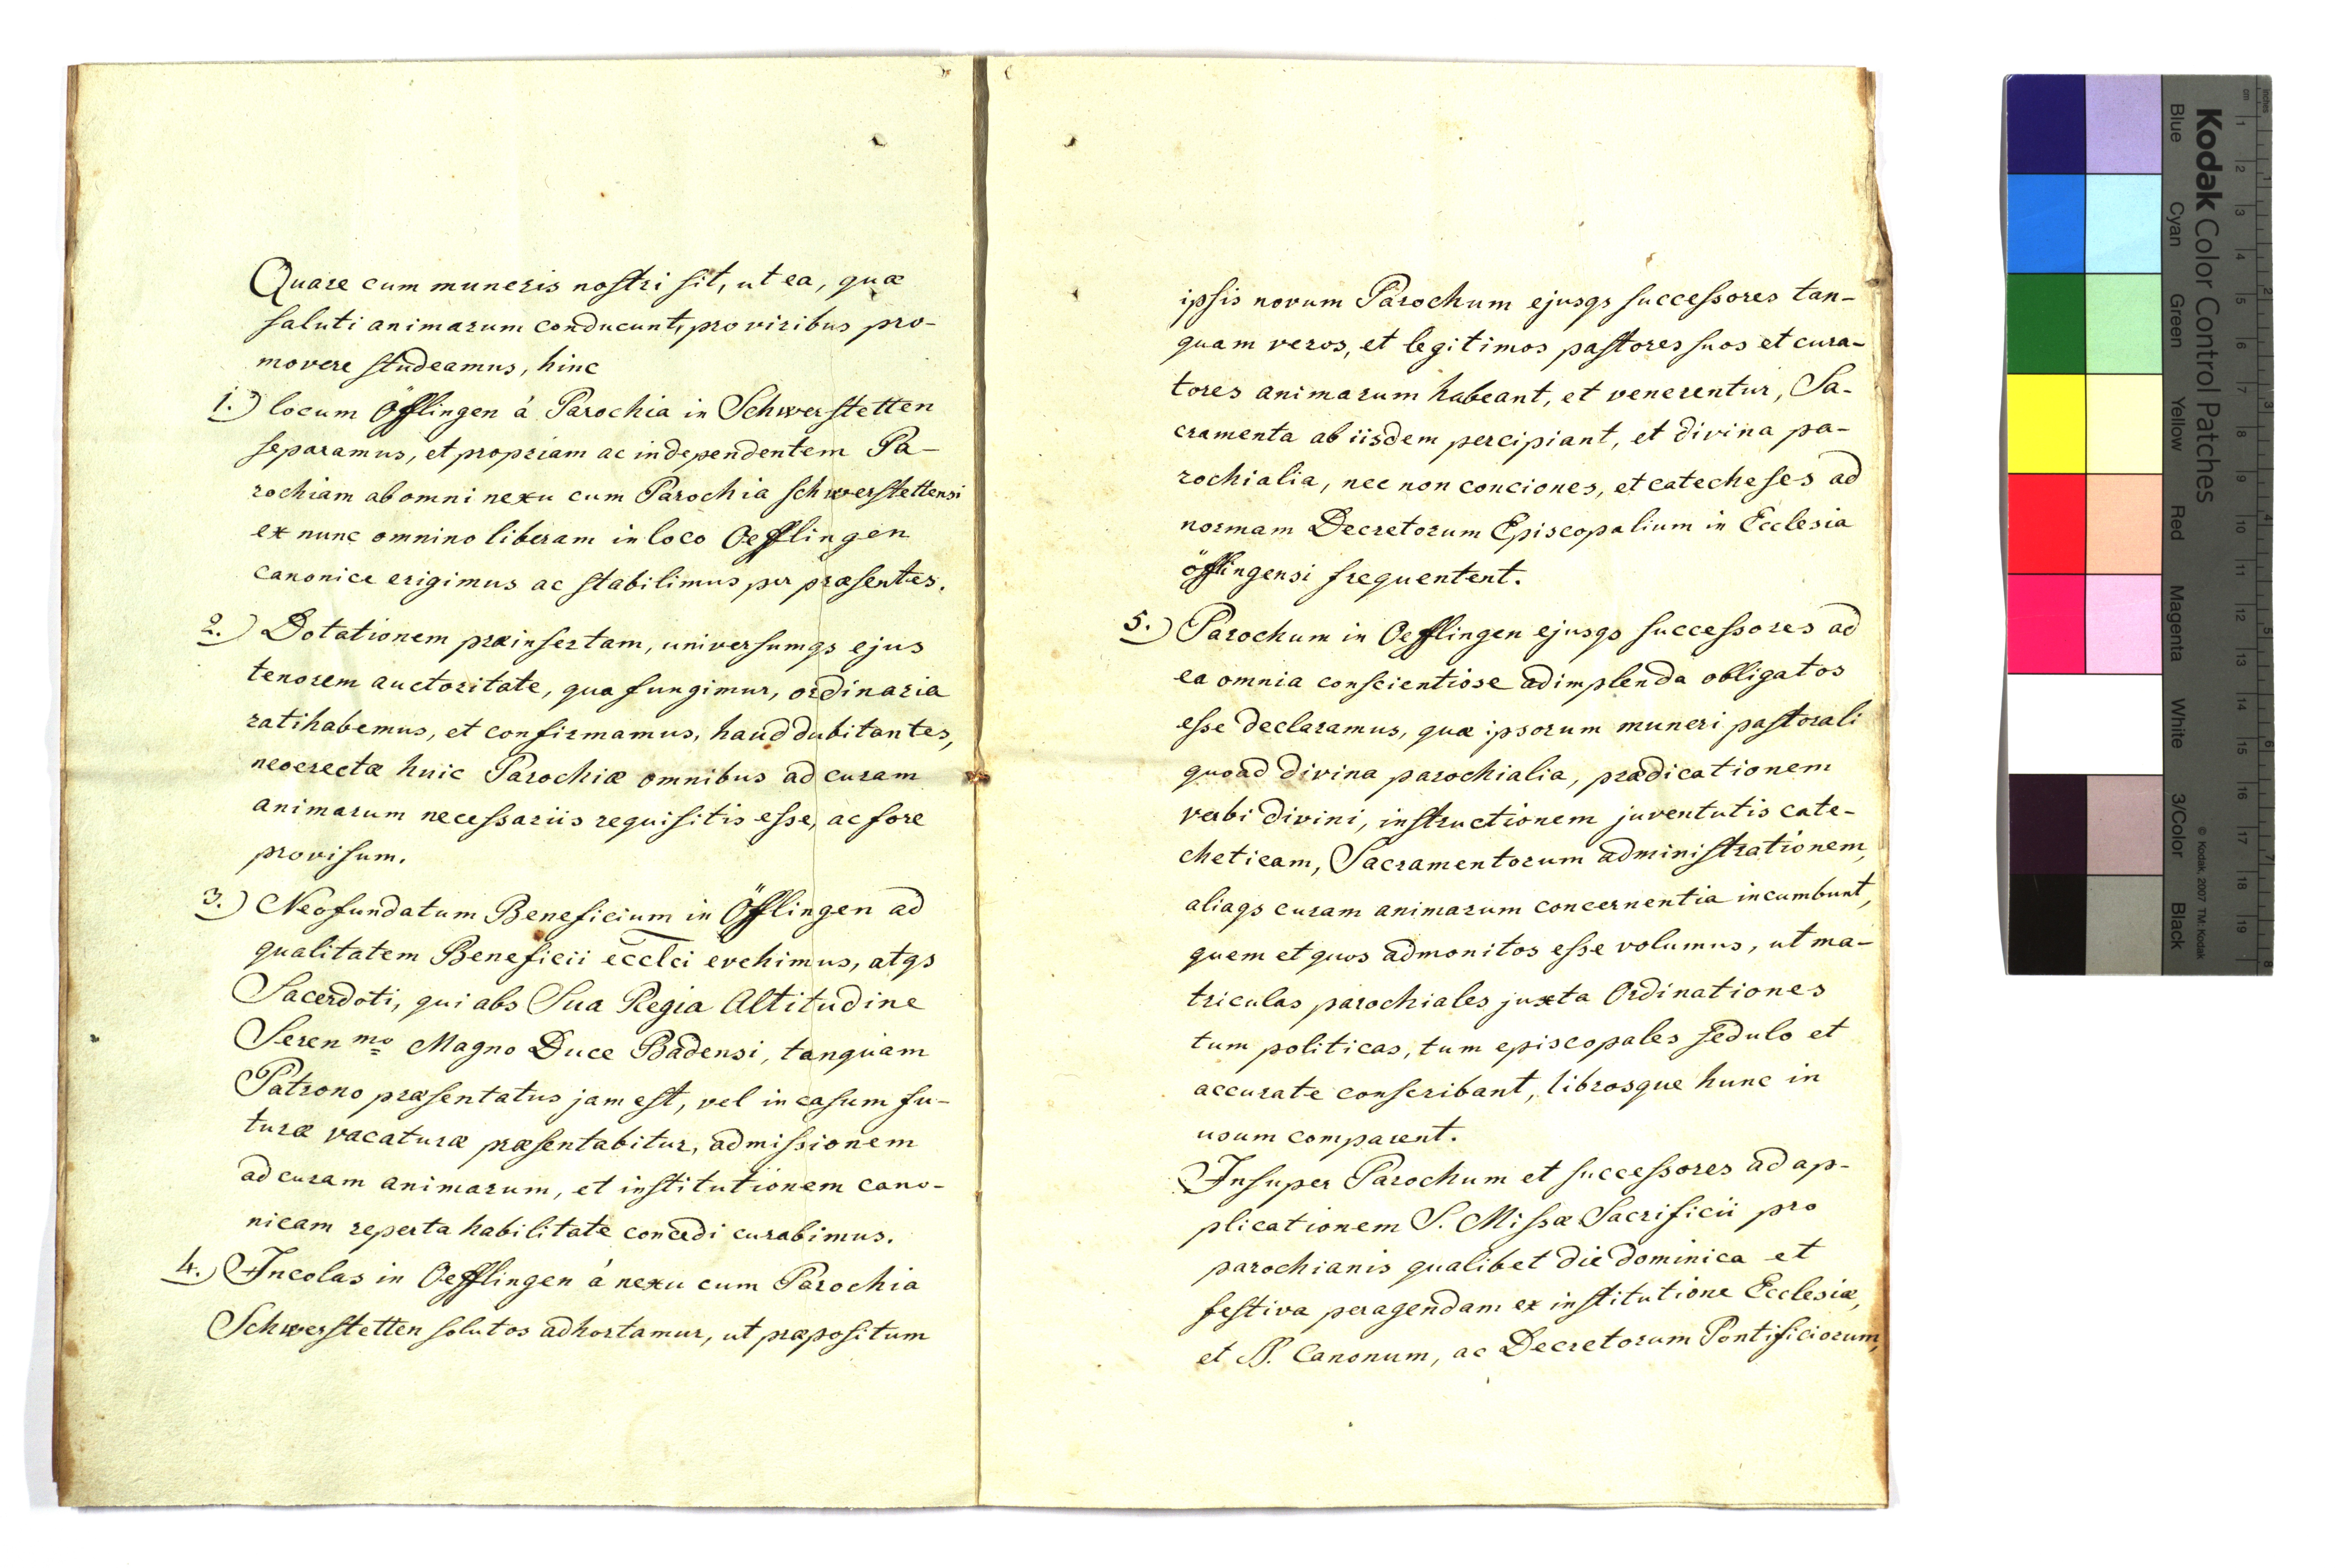 Quare cum muneris nostri sit, ut ea, quæ
saluti animarum conducunt, pro viribus pro-
movere studeamus, hinc
1.) locum Öfflingen á Parochia in Schwerstetten
separamus, et propriam ac independentem Pa-
rochiam ab omni nexu cum Parochia schwerstettensi
ex nunc omnino liberam in loco Oefflingen
canonice erigimus ac stabilimus per præsentes.
2.) Dotationem præinsertam, universumqs ejus
tenorem auctoritate, qua fungimur, ordinaria
ratihabemus, et confirmamus, haud dubitantes,
neoerectæ huic Parochiæ omnibus ad curam
animarum necessariis requisitis esse, ac fore
provisum.
3.) Neofundatum Beneficium in Öfflingen ad
qualitatem Beneficii ecclci evehimus, atqs
Sacerdoti, qui abs Sua Regia Altitudine
Seren mo Magno Duce Badensi, tanquam
Patrono præsentatus jam est, vel in casum fu-
turæ vacaturæ præsentabitur, admissionem
ad curam animarum, et institutionem cano-
nicam reperta habilitate concedi curabimus.
4.) Incolas in Oefflingen á nexu cum Parochia
Schwerstetten solutos adhortamur, ut præpositum
ipsis novum Parochum ejusqs successores tan-
quam veros, et legitimos pastores suos et cura-
tores animarum habeant, et venerentur, Sa-
cramenta ab iisdem percipiant, et divina pa-
rochialia, nec non conciones, et catecheses ad
normam Decretorum Episcopalium in Ecclesia
öfflingensi frequentent.
5.) Parochum in Oefflingen ejusqs successores ad
ea omnia conscientiose adimplenda obligatos
esse declaramus, quæ ipsorum muneri pastorali
quoad divina parochialia, prædicationem
verbi divini, instructionem juventutis cate-
cheticam, Sacramentorum administrationem,
aliaqs curam animarum concernentia incumbunt,
quem et quos admonitos esse volumus, ut ma-
triculas parochiales juxta Ordinationes
tum politicas, tum episcopales sedulo et
accurate conscribant, librosque hunc in
usum comparent.
Insuper Parochum et successores ad ap-
plicationem S. Missæ Sacrificii pro
parochianis qualibet die dominica et
festiva peragendam ex institutione Ecclesiæ,
et SS. Canonum, ac Decretorum Pontificiorum,
Kodak Color Control Patches
Blue Cyan Green Yellow Red Magenta White 3/Color Black
© Kodak, 2007 TM: Kodak
cm 1 2 3 4 5 6 7 8 9 10 11 12 13 14 15 16 17 18 19
inches 1 2 3 4 5 6 7 8